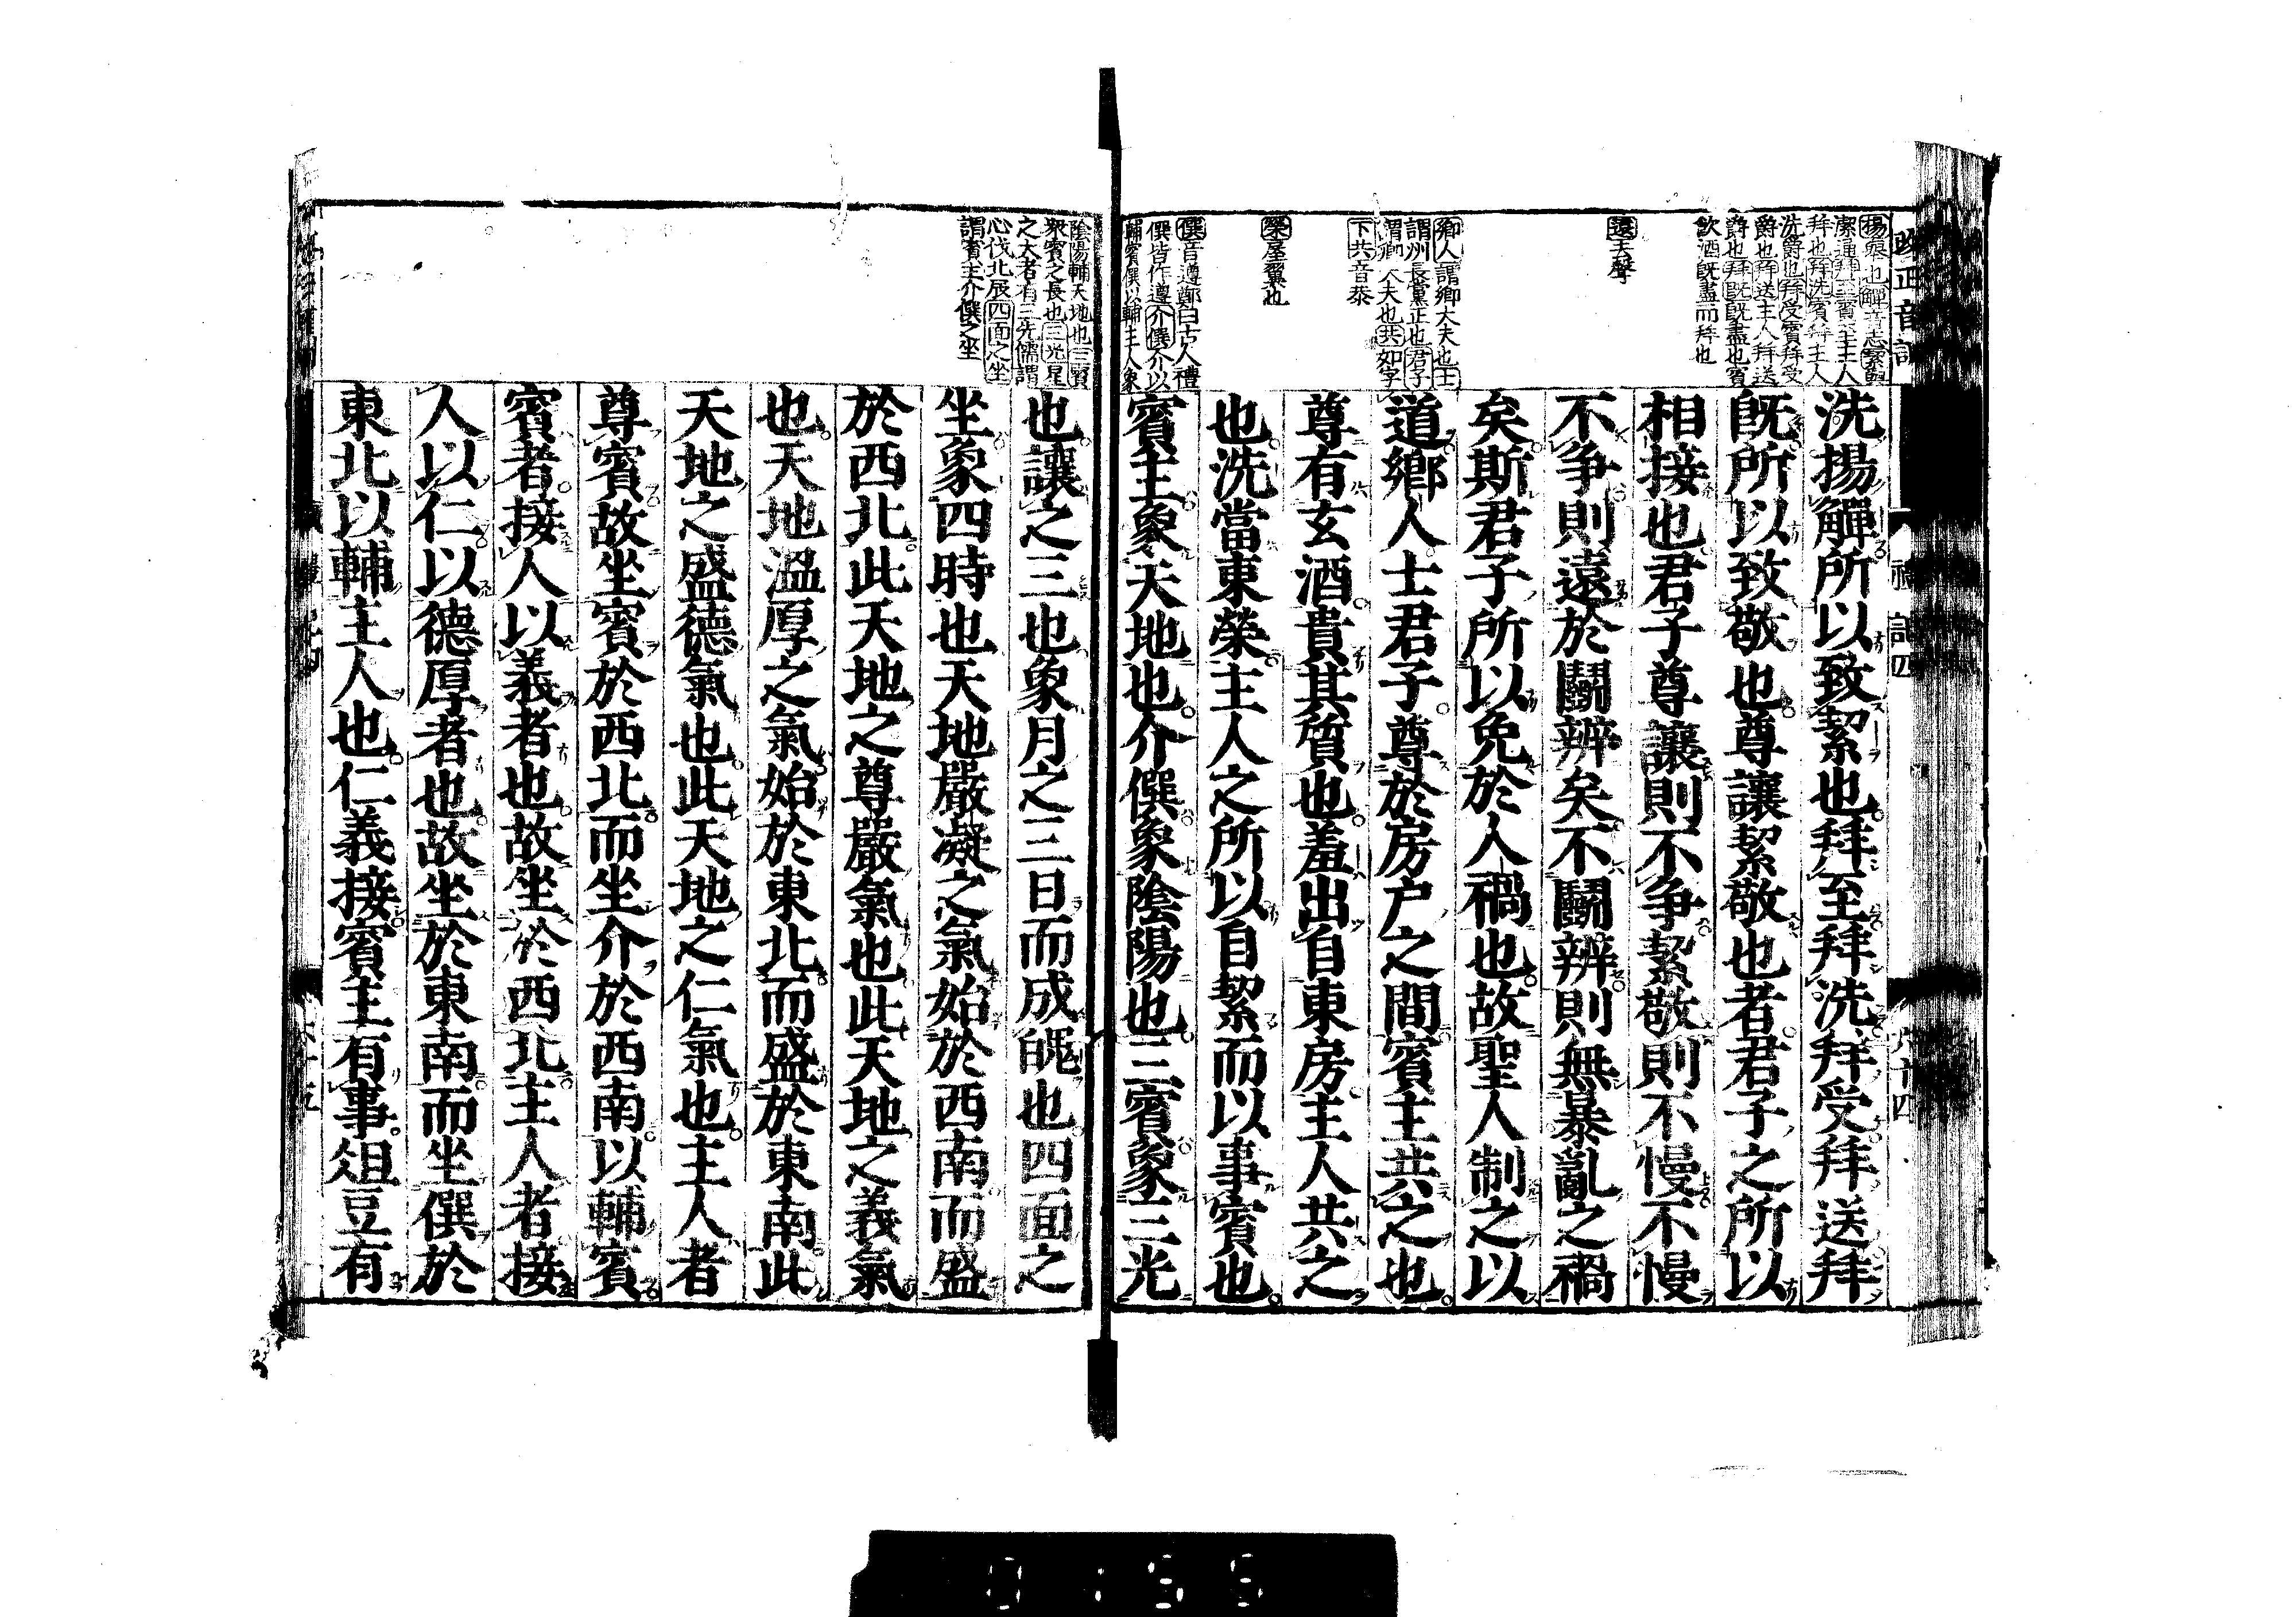 改正音訓
禮記四
六十四
揚舉也觶音志絜與
潔通拜至賓至主人
拜也拜洗賓拜主人
洗爵也拜受賓拜受
爵也拜送主人拜送
爵也拜既既盡也賓
飲酒既盡而拜也
遠去聲
鄉人謂鄉大夫也士
謂州長黨正也君子
謂卿大夫也共如字
下共音恭
榮屋翼也
僎音遵鄭曰古人禮
僎皆作遵介僎介以
輔賓僎以輔主人象
洗揚觶所以致絜也拜至拜洗拜受拜送拜
既所以致敬也尊讓絜敬也者君子之所以
相接也君子尊讓則不爭絜敬則不慢不慢
不爭則遠於鬭辨矣不鬭辨則無暴亂之禍
矣斯君子所以免於人禍也故聖人制之以
道鄉人士君子尊於房户之間賓主共之也
尊有玄酒貴其質也羞出自東房主人共之
也洗當東榮主人之所以自絜而以事賓也
賓主象天地也介僎象陰陽也三賓象三光
陰陽輔天地也三賓
衆賓之長也三光星
之大者有三先儒謂
心伐北辰四面之坐
謂賓主介僎之坐
也讓之三也象月之三日而成魄也四面之
坐象四時也天地嚴凝之氣始於西南而盛
於西北此天地之尊嚴氣也此天地之義氣
也天地溫厚之氣始於東北而盛於東南此
天地之盛德氣也此天地之仁氣也主人者
尊賓故坐賓於西北而坐介於西南以輔賓
賓者接人以義者也故坐於西北主人者接
人以仁以德厚者也故坐於東南而坐僎於
東北以輔主人也仁義接賓主有事俎豆有
0155